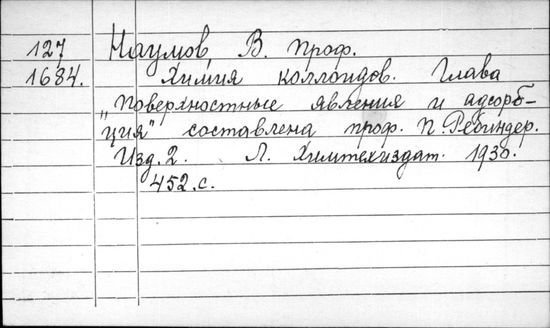 127 Наумов, В. проф.
1684. Химия коллоидов. Глава
"Поверхностные явления и адсорб-
ция" составлена проф. П. Ребиндер.
Изд. 2. Л. Химтехиздат. 1930.
452 с.